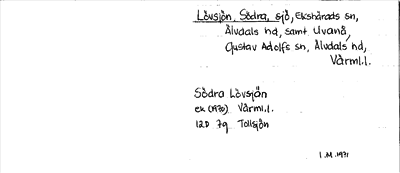 Lövsjön, Södra, sjö, Ekshärads sn,
Älvdals hd, samt Uvanå,
Gustav Adolfs sn, Älvdals hd,
Värml.l.
Södra Lövsjön
ek (1970) Värml.l.
12D 7g Tollsjön
I.M. 1971